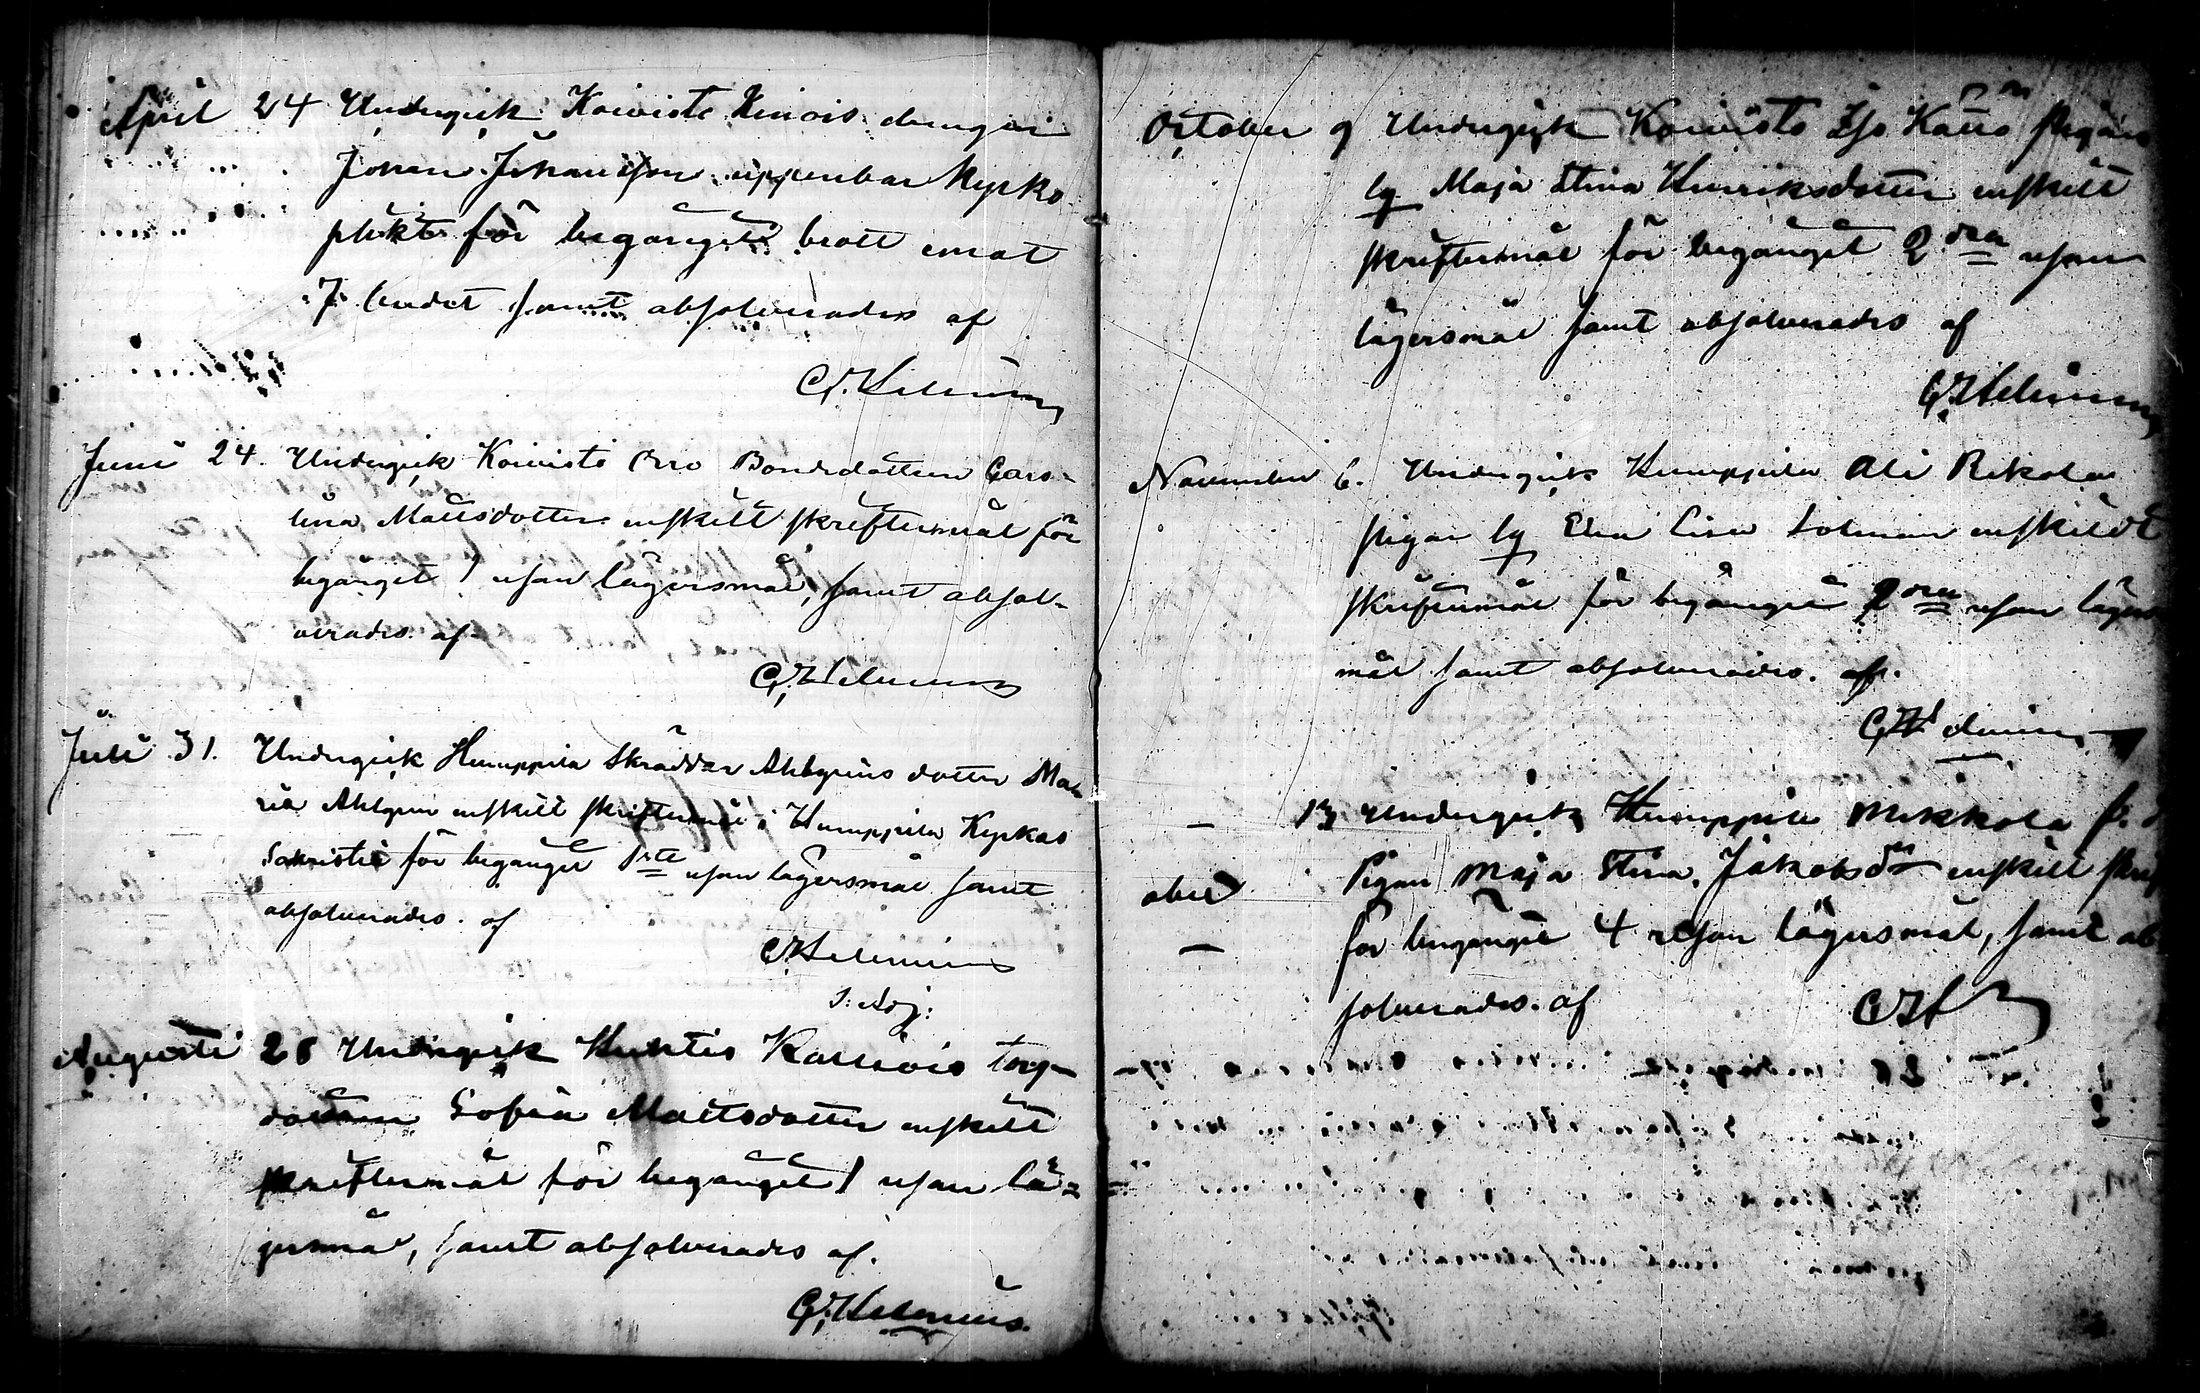 April 24 Undergick Koivisto Heinois drengen
Johan Johansson uppenbar Kyrko-
plikt för begånget brott emot
7 budet samt absolverades af
C. J. Helenius
Juni 24. Undergick Koivisto Orro Bondedottern Caro-
lina Mattsdotter enskilt skriftermål för
begånget 1 resan lägersmål, samt absol-
verades af
C. J. Helenius
Juli 31. Undergick Humppila Skräddar Ahlgrens dotter Ma-
ria Ahlgren enskilt skriftermål i Humppila Kyrkas
Sakristia för begånget 1sta resan lägersmål samt
absolverades af
C. J. Helenius
v. Adj.
Augusti 28 Undergick torp-
dottern Sofia Mattsdotter enskilt
skriftermål för begånget 1 resan lä-
gersmål, samt absolverades af.
C. J. Helenius.
October 9 Undergick Koivisto Iso Kauro pigan
lg Maja Stina Henriksdotter enskilt
skriftermål för begånget 2dra resan
lägersmål samt absolverades af
C. J. Helenius
November 6. Undergick Humppila Ali Rekola
pigan lg Eva Lisa Solman enskildt
skriftermål för begånget 2dra resan lägers
mål samt absolverades. af.
C. J. Helenius
— 13 Undergick Humppila Mikkola
Pigan Maja Stina Jakobsdr enskilt skrif
för begånget 4 resan lägersmål, samt ab
solverades. af C J H